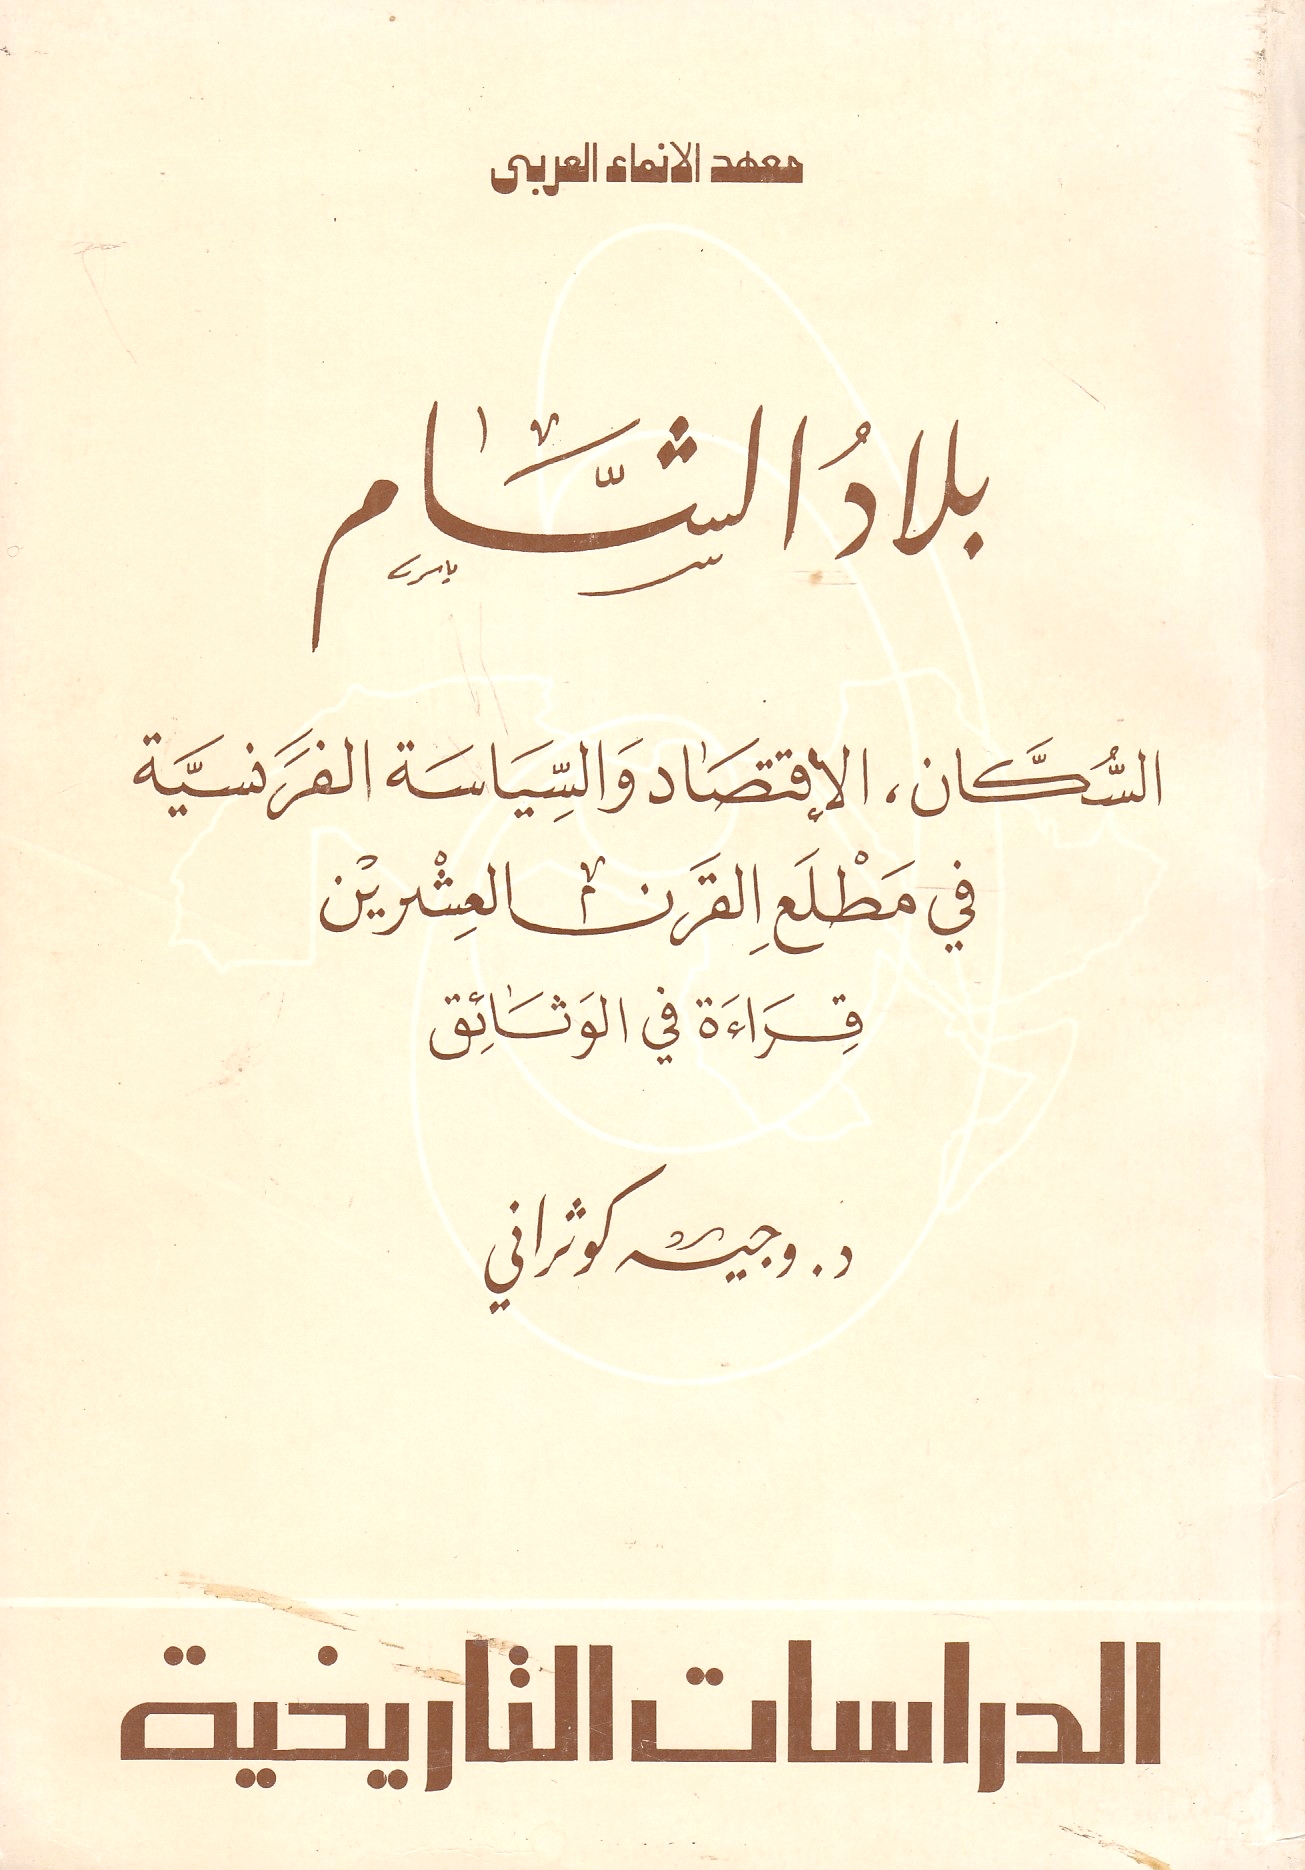 معهد الانماء العربي
بلادُ الشَّام
ياسر
السُّكَّان، الإقتصَاد وَالسِّيَاسَة الفرَنسيَّة
في مَطْلَع القرَن العِشْريْن
قِرَاءَة في الوَثَائِق
د. وجيه كوثراني
الدراسات التاريخية